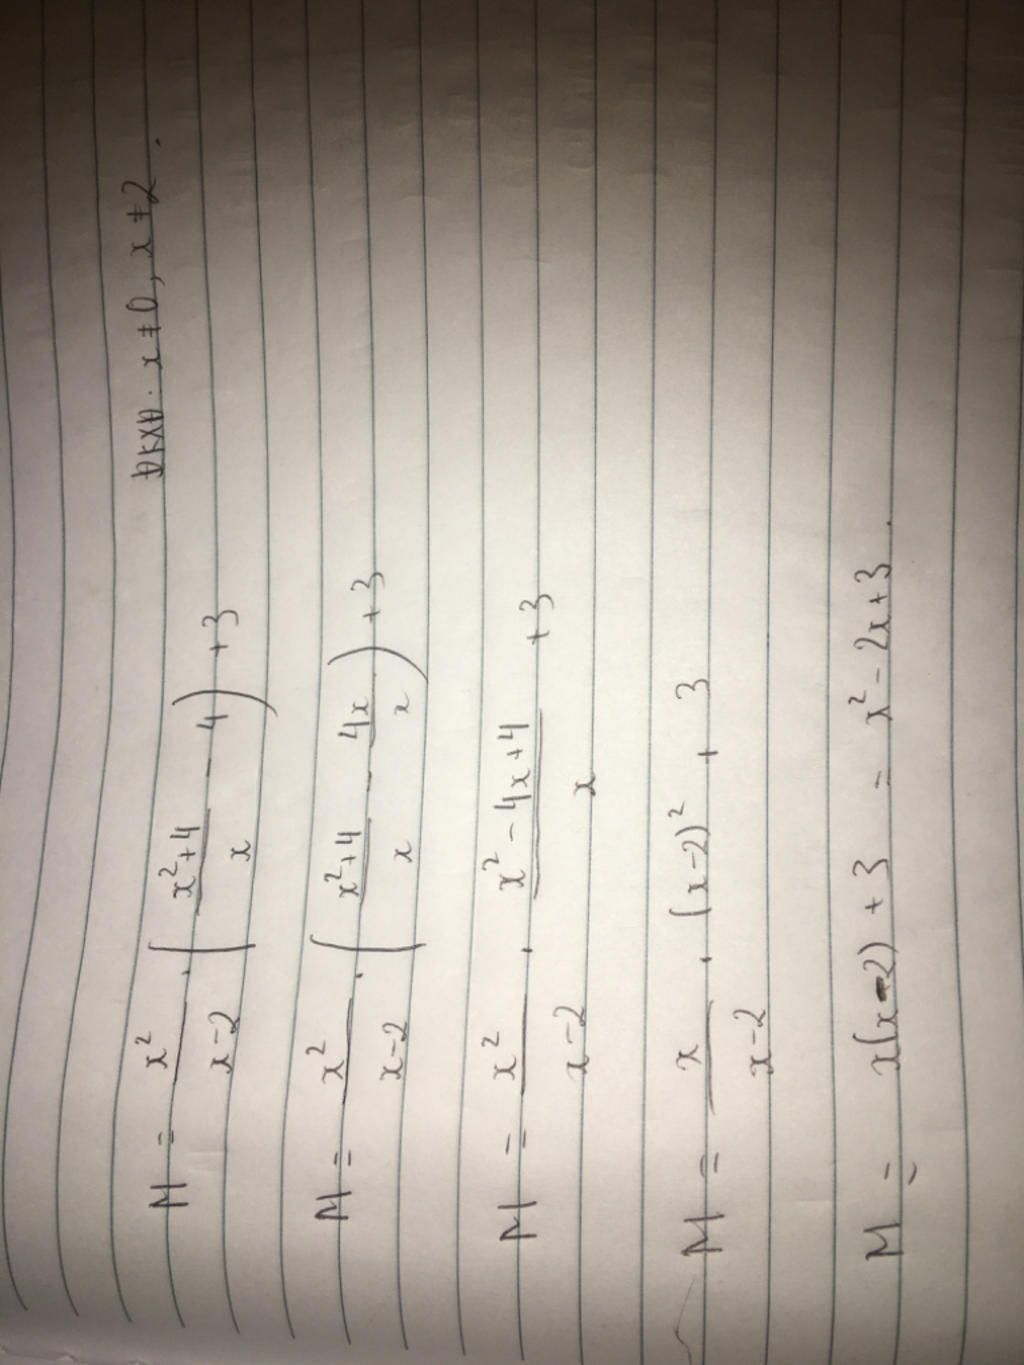 ĐKXĐ: x ≠ 0, x ≠ 2.
M = x²/(x-2) . ((x²+4)/x - 4) + 3
M = x²/(x-2) . ((x²+4)/x - 4x/x) + 3
M = x²/(x-2) . (x² - 4x + 4)/x + 3
M = x/(x-2) . (x-2)² + 3
M = x(x-2) + 3 = x² - 2x + 3.